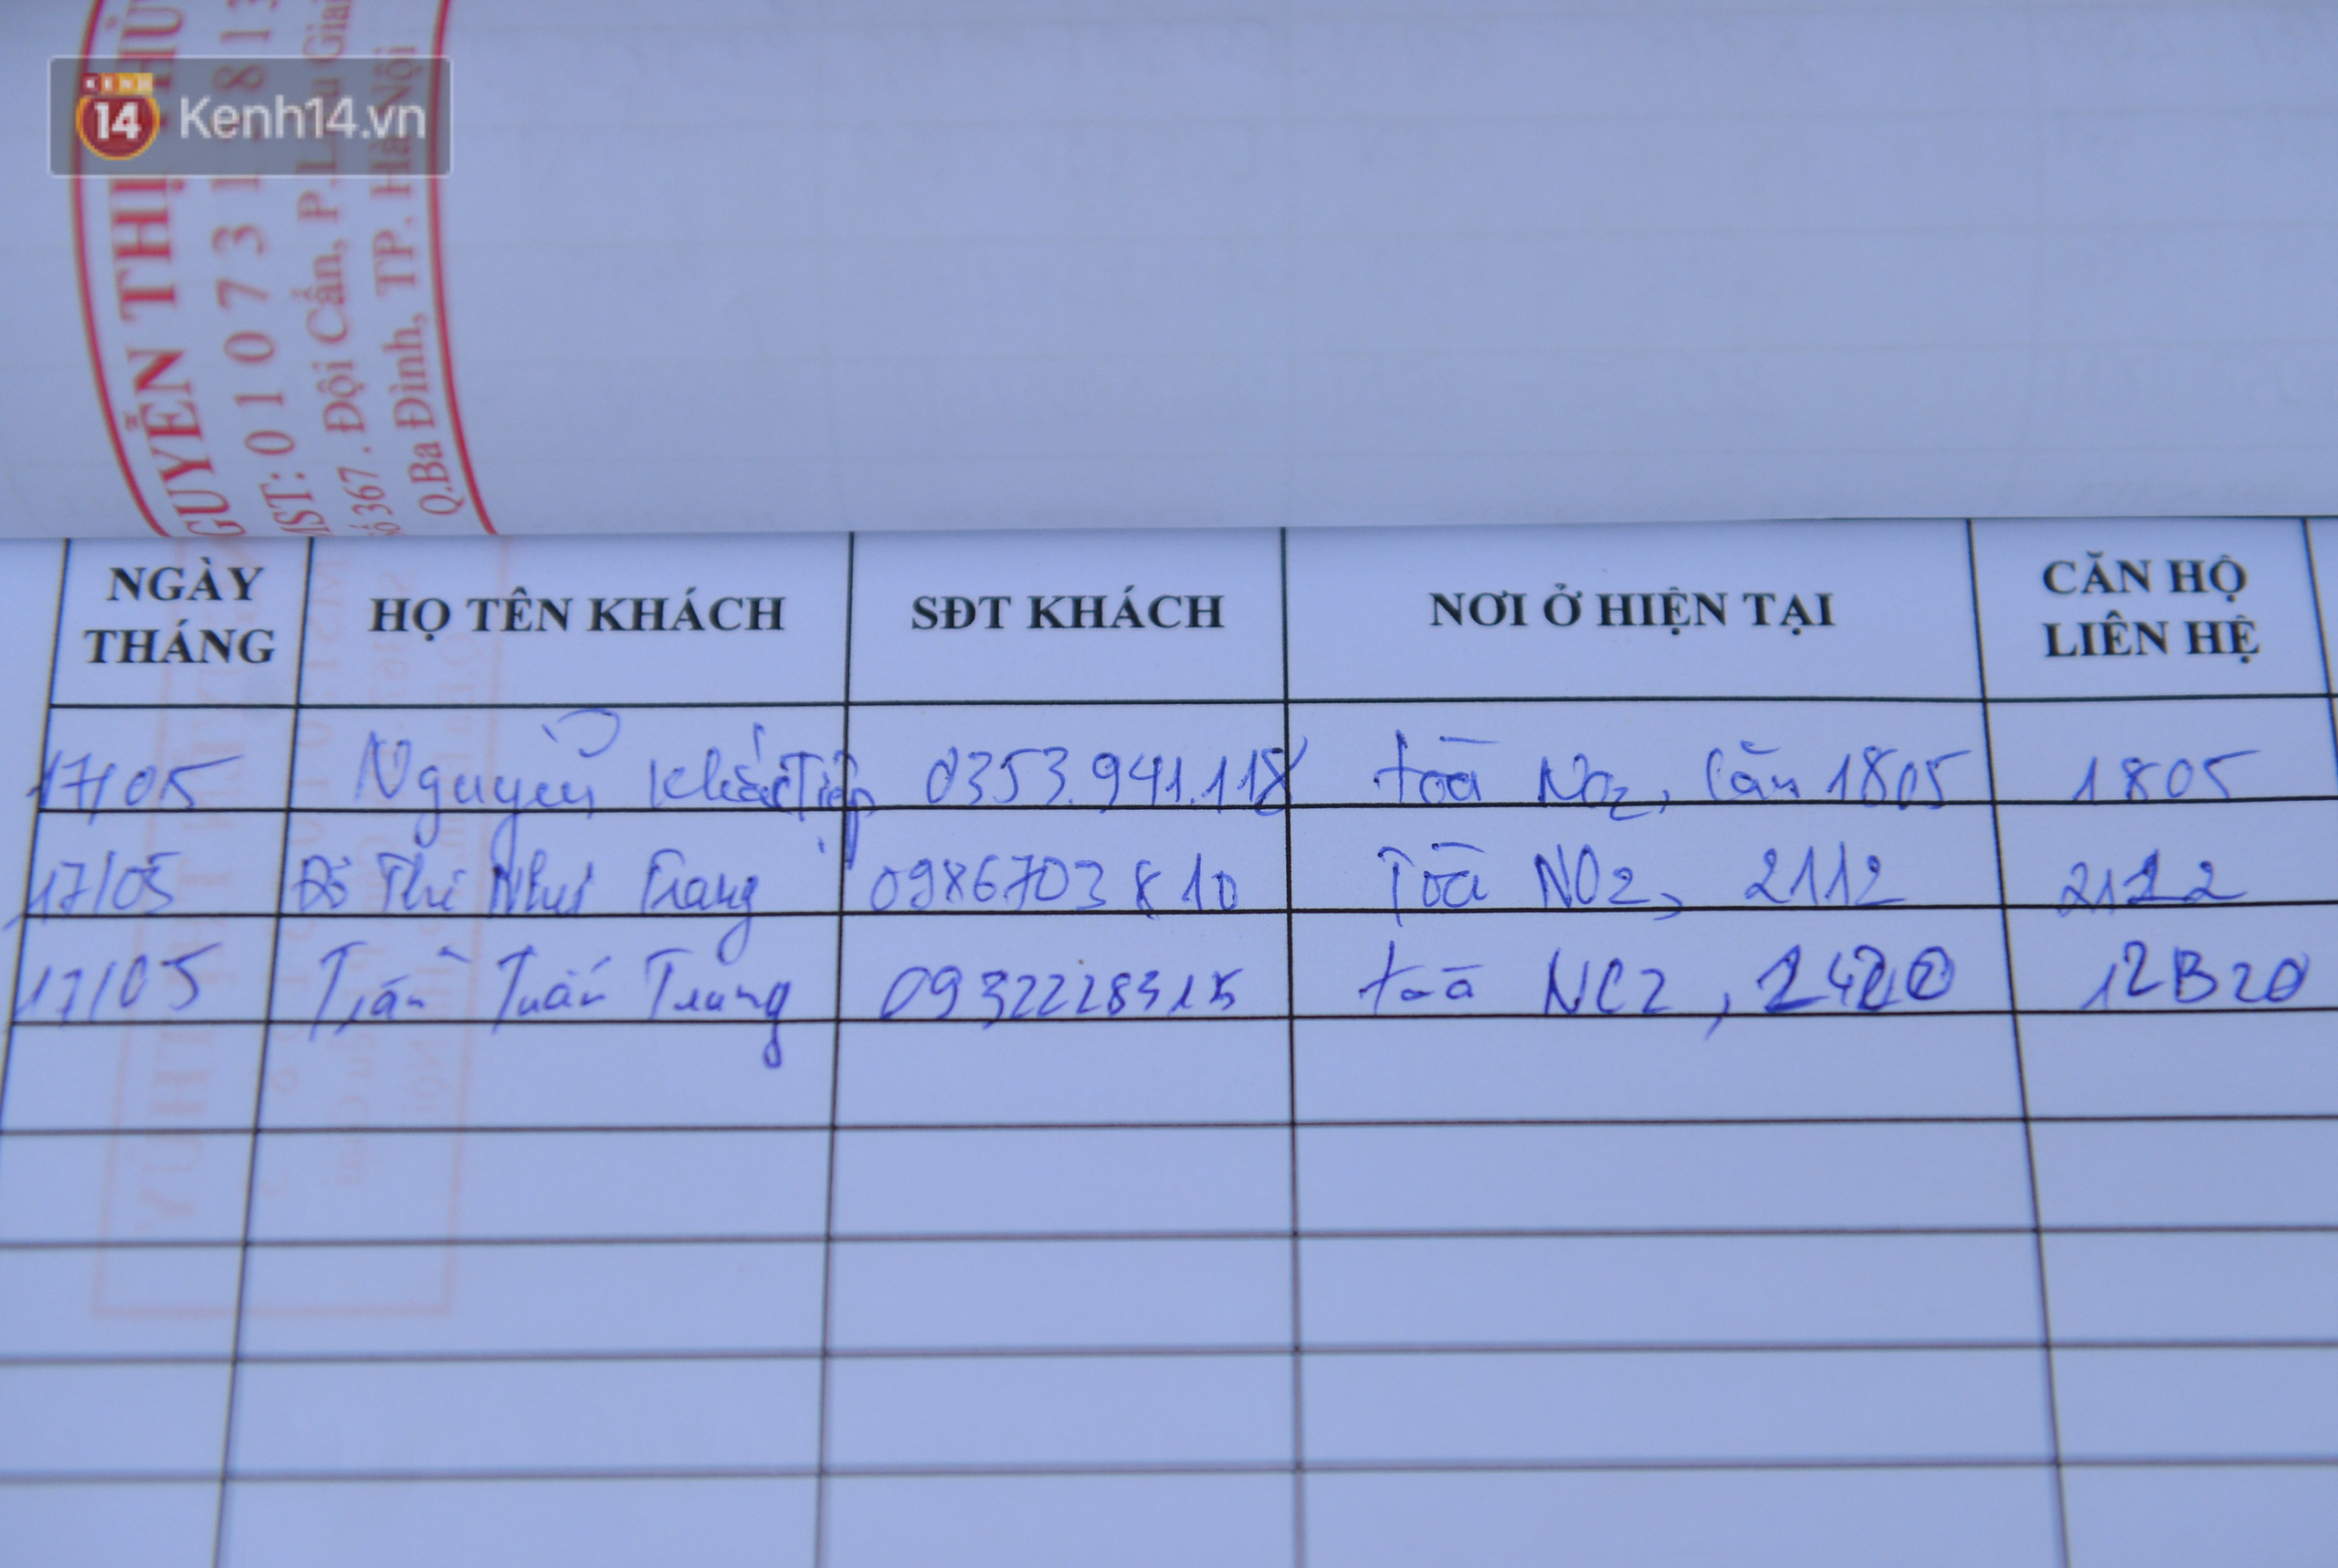 KENH
14 Kenh14.vn
GUYỄN THỊ
ST: 0 1 0 7 3 1 8 1 3
367 . Đội Cấn, P.
Q.Ba Đình, TP. Hà Nội
NGÀY THÁNG HỌ TÊN KHÁCH SĐT KHÁCH NƠI Ở HIỆN TẠI CĂN HỘ LIÊN HỆ
17/05 Nguyễn Khắc Tiệp 0353.941.118 toà No2, Căn 1805 1805
17/05 Đỗ Thị Như Trang 0986703810 Toà NO2, 2112 2112
17/05 Trần Tuấn Trung toà NC2, 12B20